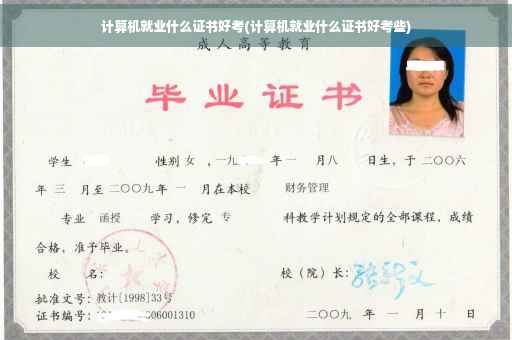 计算机就业什么证书好考(计算机就业什么证书好考些)
成人高等教育
毕业证书
学生 性别 女 ,一九 年一 月八 日生,于二〇〇六
年 三 月至二〇〇九年 一 月在本校 财务管理
专业 函授 学习,修完 专 科教学计划规定的全部课程,成绩
合格,准予毕业。
校 名: 校(院)长:
批准文号:教计[1998]33号
证书编号: 06001310 二〇〇九 年 一 月 十 日